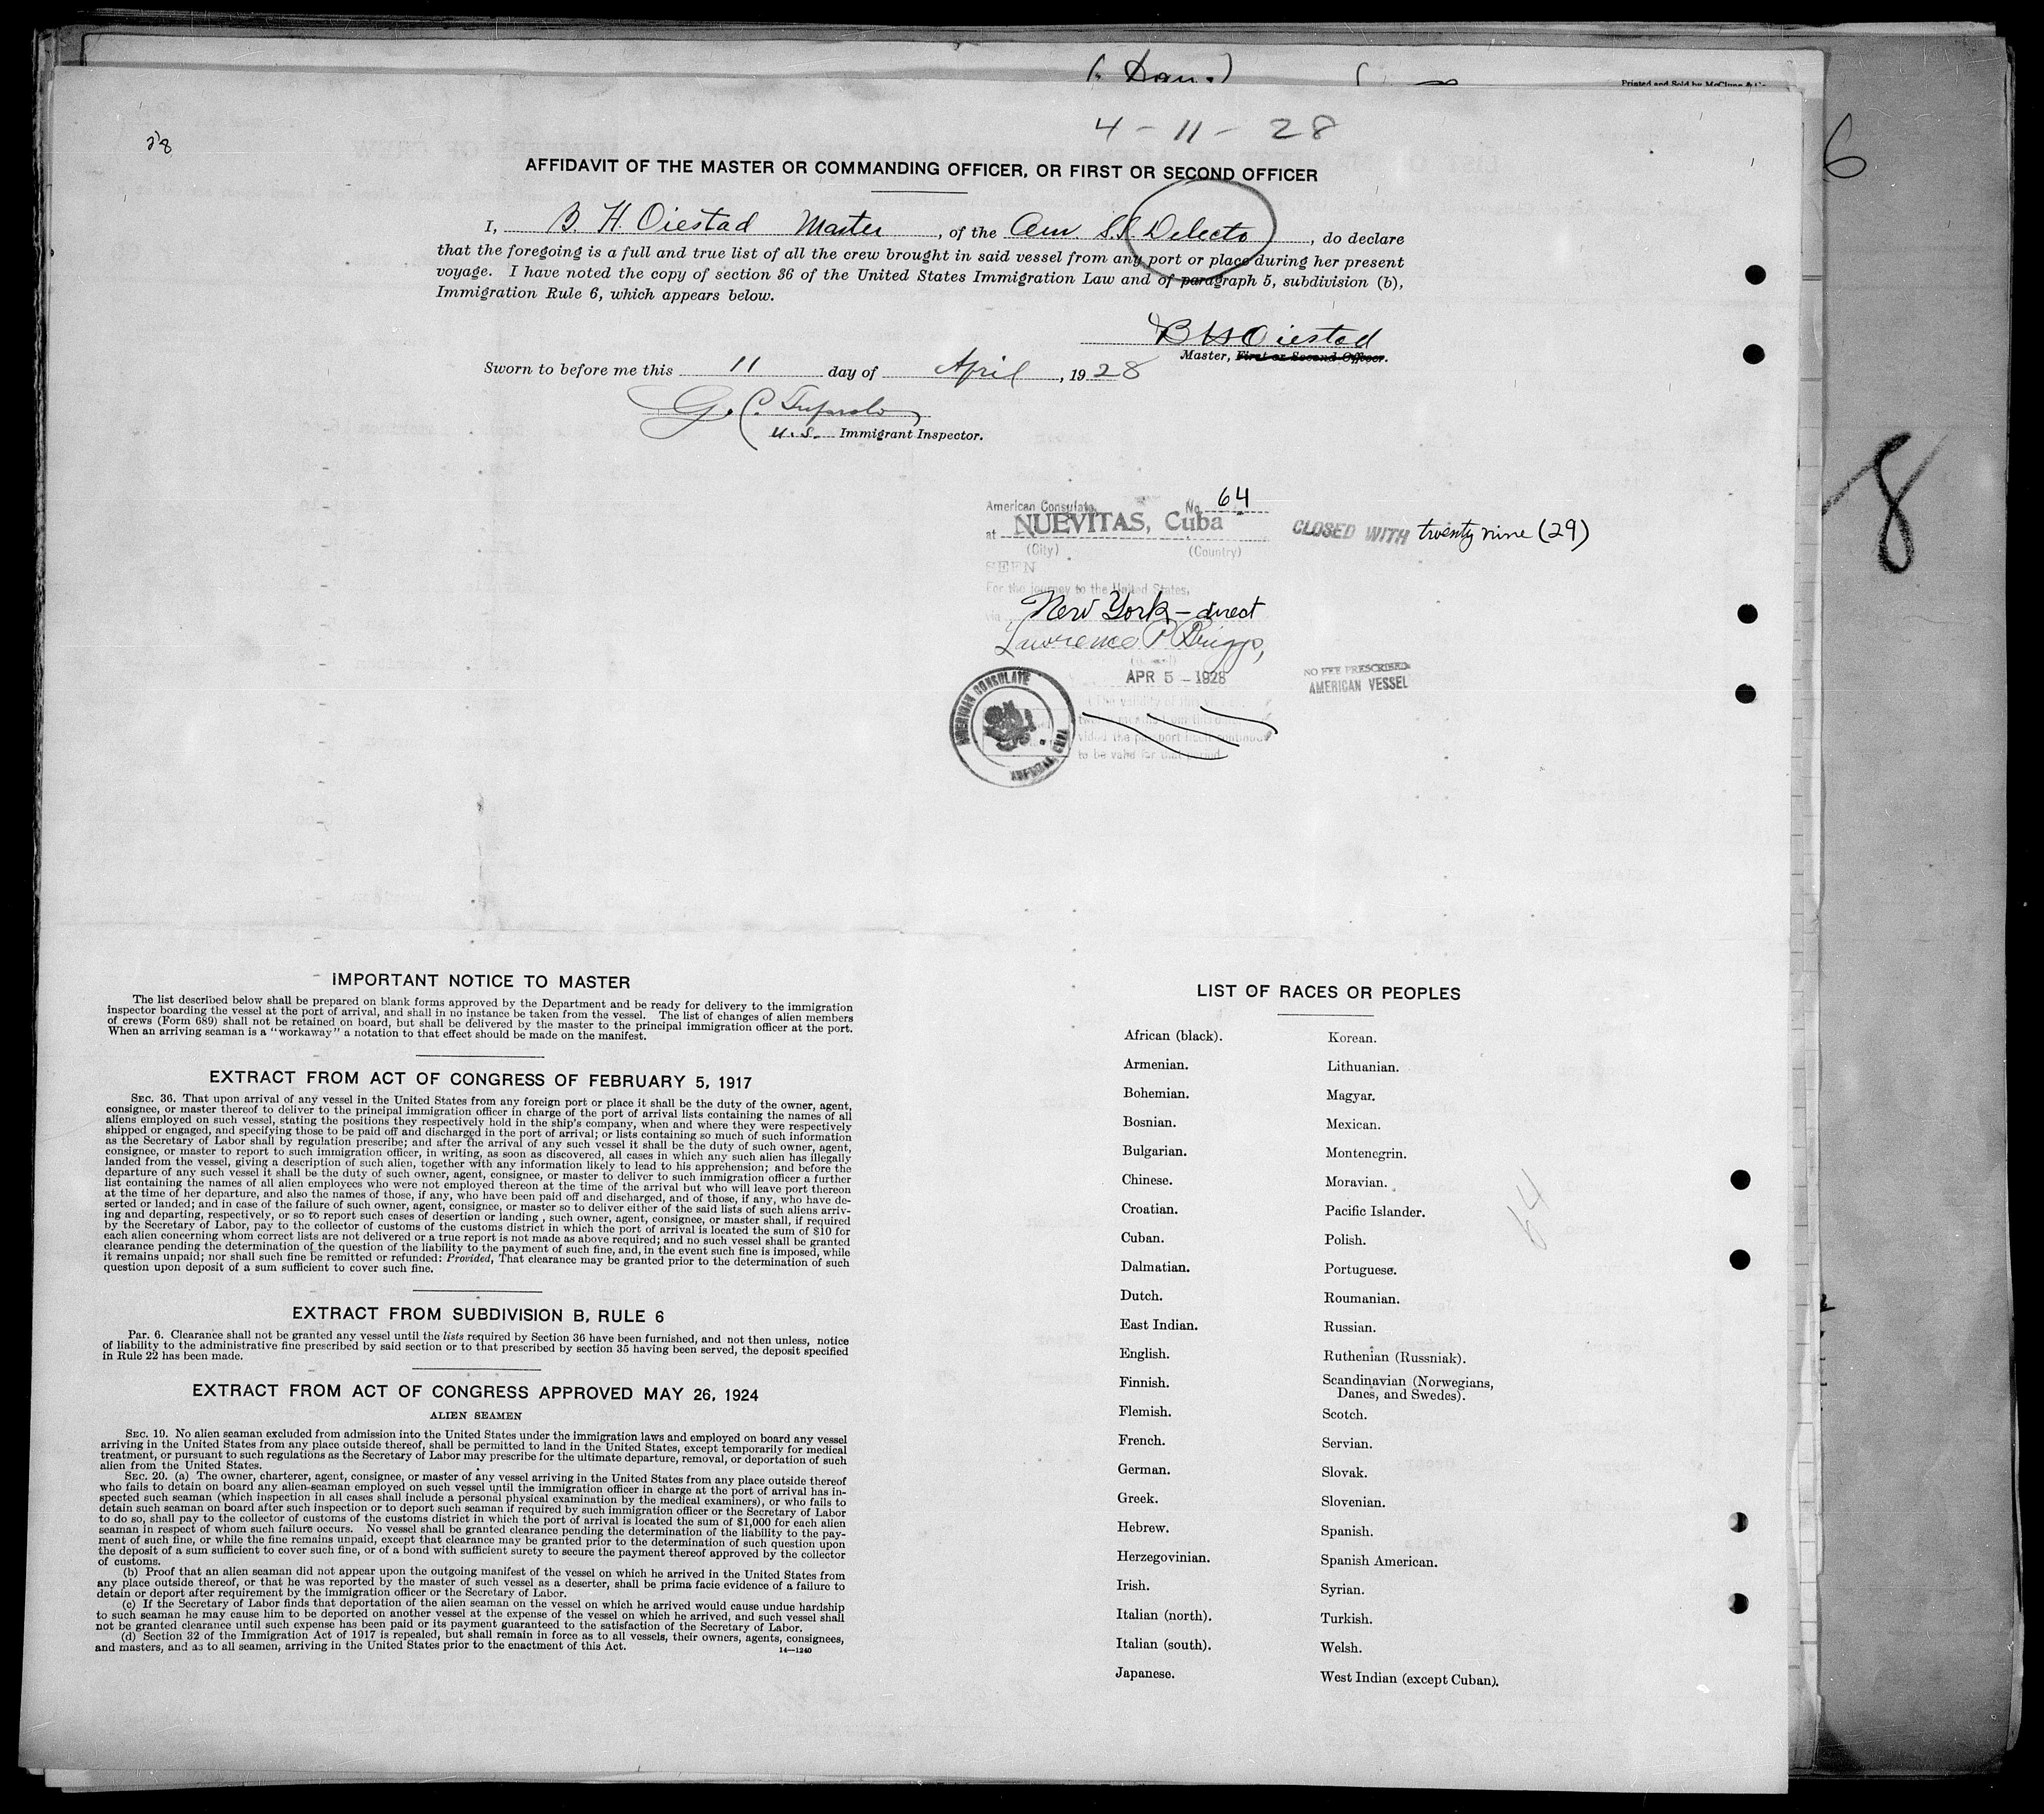 ( Dan.)
Printed and Sold by McClung & Co
4 - 11 - 28
28
6
AFFIDAVIT OF THE MASTER OR COMMANDING OFFICER, OR FIRST OR SECOND OFFICER
I, B. H. Oiestad Master, of the Am. S.S. Delecto, do declare
that the foregoing is a full and true list of all the crew brought in said vessel from any port or place during her present
voyage. I have noted the copy of section 36 of the United States Immigration Law and of paragraph 5, subdivision (b),
Immigration Rule 6, which appears below.
B H Oiestad
Master, First or Second Officer.
Sworn to before me this 11 day of April, 1928
G. C.
U.S. Immigrant Inspector.
8
American Consulate, No. 64
at NUEVITAS, Cuba
(City) (Country)
CLOSED WITH twenty nine (29)
SEEN
For the journey to the United States,
via New York - direct
Lawrence P Briggs,
APR 5 - 1928
NO FEE PRESCRIBED
AMERICAN VESSEL
AMERICAN CONSULATE
NUEVITAS, CUBA
(The validity of this
twelve months from this date
vided the passport itself continues
to be valid for that period
IMPORTANT NOTICE TO MASTER
The list described below shall be prepared on blank forms approved by the Department and be ready for delivery to the immigration
inspector boarding the vessel at the port of arrival, and shall in no instance be taken from the vessel. The list of changes of alien members
of crews (Form 689) shall not be retained on board, but shall be delivered by the master to the principal immigration officer at the port.
When an arriving seaman is a "workaway" a notation to that effect should be made on the manifest.
EXTRACT FROM ACT OF CONGRESS OF FEBRUARY 5, 1917
SEC. 36. That upon arrival of any vessel in the United States from any foreign port or place it shall be the duty of the owner, agent,
consignee, or master thereof to deliver to the principal immigration officer in charge of the port of arrival lists containing the names of all
aliens employed on such vessel, stating the positions they respectively hold in the ship's company, when and where they were respectively
shipped or engaged, and specifying those to be paid off and discharged in the port of arrival; or lists containing so much of such information
as the Secretary of Labor shall by regulation prescribe; and after the arrival of any such vessel it shall be the duty of such owner, agent,
consignee, or master to report to such immigration officer, in writing, as soon as discovered, all cases in which any such alien has illegally
landed from the vessel, giving a description of such alien, together with any information likely to lead to his apprehension; and before the
departure of any such vessel it shall be the duty of such owner, agent, consignee, or master to deliver to such immigration officer a further
list containing the names of all alien employees who were not employed thereon at the time of the arrival but who will leave port thereon
at the time of her departure, and also the names of those, if any, who have been paid off and discharged, and of those, if any, who have de-
serted or landed; and in case of the failure of such owner, agent, consignee, or master so to deliver either of the said lists of such aliens arriv-
ing and departing, respectively, or so to report such cases of desertion or landing , such owner, agent, consignee, or master shall, if required
by the Secretary of Labor, pay to the collector of customs of the customs district in which the port of arrival is located the sum of $10 for
each alien concerning whom correct lists are not delivered or a true report is not made as above required; and no such vessel shall be granted
clearance pending the determination of the question of the liability to the payment of such fine, and, in the event such fine is imposed, while
it remains unpaid; nor shall such fine be remitted or refunded: Provided, That clearance may be granted prior to the determination of such
question upon deposit of a sum sufficient to cover such fine.
EXTRACT FROM SUBDIVISION B, RULE 6
Par. 6. Clearance shall not be granted any vessel until the lists required by Section 36 have been furnished, and not then unless, notice
of liability to the administrative fine prescribed by said section or to that prescribed by section 35 having been served, the deposit specified
in Rule 22 has been made.
EXTRACT FROM ACT OF CONGRESS APPROVED MAY 26, 1924
ALIEN SEAMEN
SEC. 19. No alien seaman excluded from admission into the United States under the immigration laws and employed on board any vessel
arriving in the United States from any place outside thereof, shall be permitted to land in the United States, except temporarily for medical
treatment, or pursuant to such regulations as the Secretary of Labor may prescribe for the ultimate departure, removal, or deportation of such
alien from the United States.
SEC. 20. (a) The owner, charterer, agent, consignee, or master of any vessel arriving in the United States from any place outside thereof
who fails to detain on board any alien seaman employed on such vessel until the immigration officer in charge at the port of arrival has in-
spected such seaman (which inspection in all cases shall include a personal physical examination by the medical examiners), or who fails to
detain such seaman on board after such inspection or to deport such seaman if required by such immigration officer or the Secretary of Labor
to do so, shall pay to the collector of customs of the customs district in which the port of arrival is located the sum of $1,000 for each alien
seaman in respect of whom such failure occurs. No vessel shall be granted clearance pending the determination of the liability to the pay-
ment of such fine, or while the fine remains unpaid, except that clearance may be granted prior to the determination of such question upon
the deposit of a sum sufficient to cover such fine, or of a bond with sufficient surety to secure the payment thereof approved by the collector
of customs.
(b) Proof that an alien seaman did not appear upon the outgoing manifest of the vessel on which he arrived in the United States from
any place outside thereof, or that he was reported by the master of such vessel as a deserter, shall be prima facie evidence of a failure to
detain or deport after requirement by the immigration officer or the Secretary of Labor.
(c) If the Secretary of Labor finds that deportation of the alien seaman on the vessel on which he arrived would cause undue hardship
to such seaman he may cause him to be deported on another vessel at the expense of the vessel on which he arrived, and such vessel shall
not be granted clearance until such expense has been paid or its payment guaranteed to the satisfaction of the Secretary of Labor.
(d) Section 32 of the Immigration Act of 1917 is repealed, but shall remain in force as to all vessels, their owners, agents, consignees,
and masters, and as to all seamen, arriving in the United States prior to the enactment of this Act.
14—1240
LIST OF RACES OR PEOPLES
African (black).
Armenian.
Bohemian.
Bosnian.
Bulgarian.
Chinese.
Croatian.
Cuban.
Dalmatian.
Dutch.
East Indian.
English.
Finnish.
Flemish.
French.
German.
Greek.
Hebrew.
Herzegovinian.
Irish.
Italian (north).
Italian (south).
Japanese.
Korean.
Lithuanian.
Magyar.
Mexican.
Montenegrin.
Moravian.
Pacific Islander.
Polish.
Portuguese.
Roumanian.
Russian.
Ruthenian (Russniak).
Scandinavian (Norwegians,
Danes, and Swedes).
Scotch.
Servian.
Slovak.
Slovenian.
Spanish.
Spanish American.
Syrian.
Turkish.
Welsh.
West Indian (except Cuban).
64